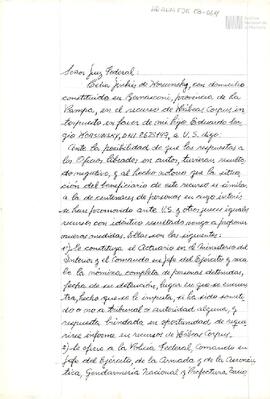 Señor Juez Federal:
Celia Jurkés de Horisinsky, con domicilio
constituido en Bernasconi, provincia de La
Pampa, en el recurso de Hábeas Corpus in-
terpuesto en favor de mi hijo Eduardo Ser-
gio DNI a U.S. digo:
Ante la posibilidad de que las respuestas a
los Oficios librados en autos, tuvieran resulta-
do negativo, y al hecho notorio que la situa-
ción del beneficiario de este recurso es similar
a la de centenares de personas en cuyo interés
se han promovido ante U.S. y otros jueces iguales
recursos con idéntico resultado vengo a proponer
nuevas medidas. Ellas son las siguientes:
1) Se constituya el Actuario en el Ministerio del
Interior y el Comando en Jefe del Ejército y reca-
be la nómina completa de personas detenidas,
fecha de su detención, lugar en que se encuen-
tran, hecho que se le imputa, si ha sido someti-
do o no a tribunal o autoridad alguna, y
respuesta brindada en oportunidad de reque-
rirse informe en recursos de Hábeas Corpus.
2) Se oficie a la Policía Federal, Comando en
Jefe del Ejército, de la Armada y de la Aeronáu-
tica, Gendarmería Nacional y Prefectura